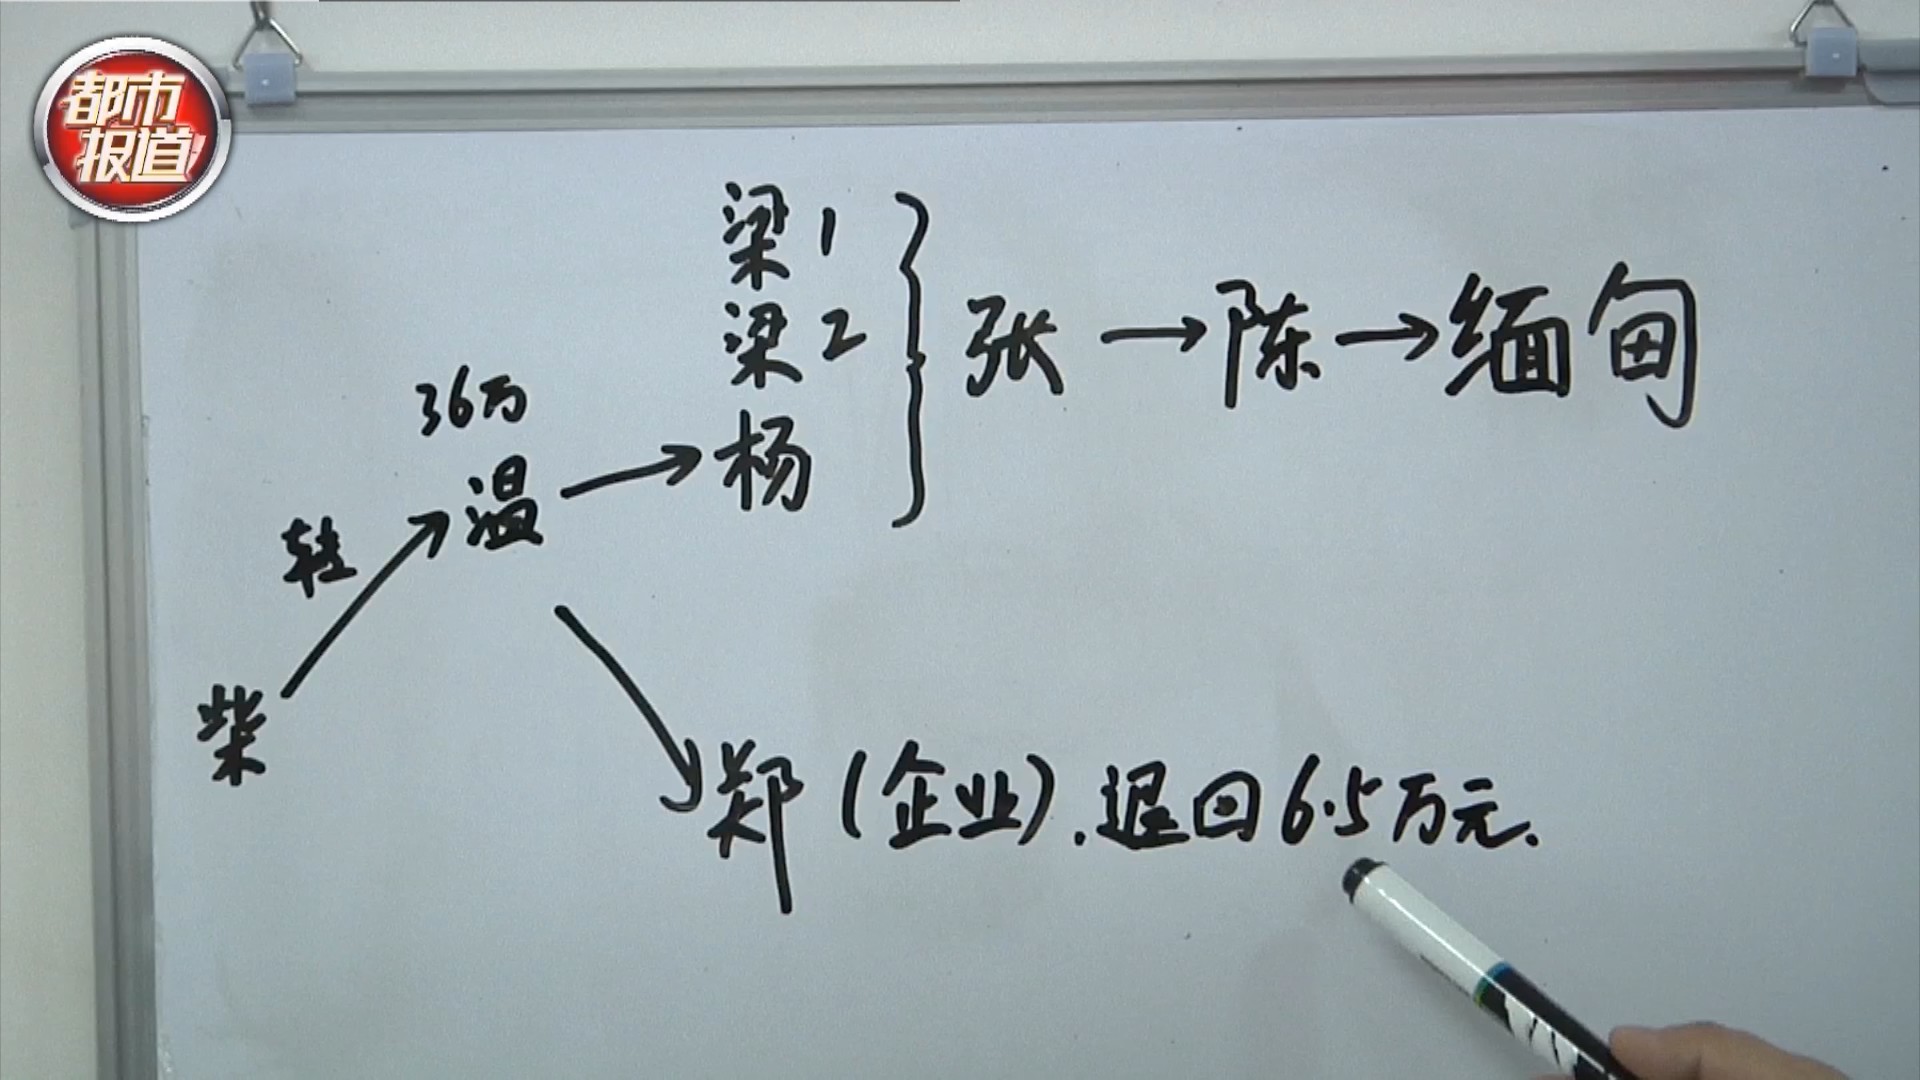 都市
报道
梁1
梁2
杨
张→陈→缅甸
36万
温
转
柴
郑(企业).退回6.5万元.